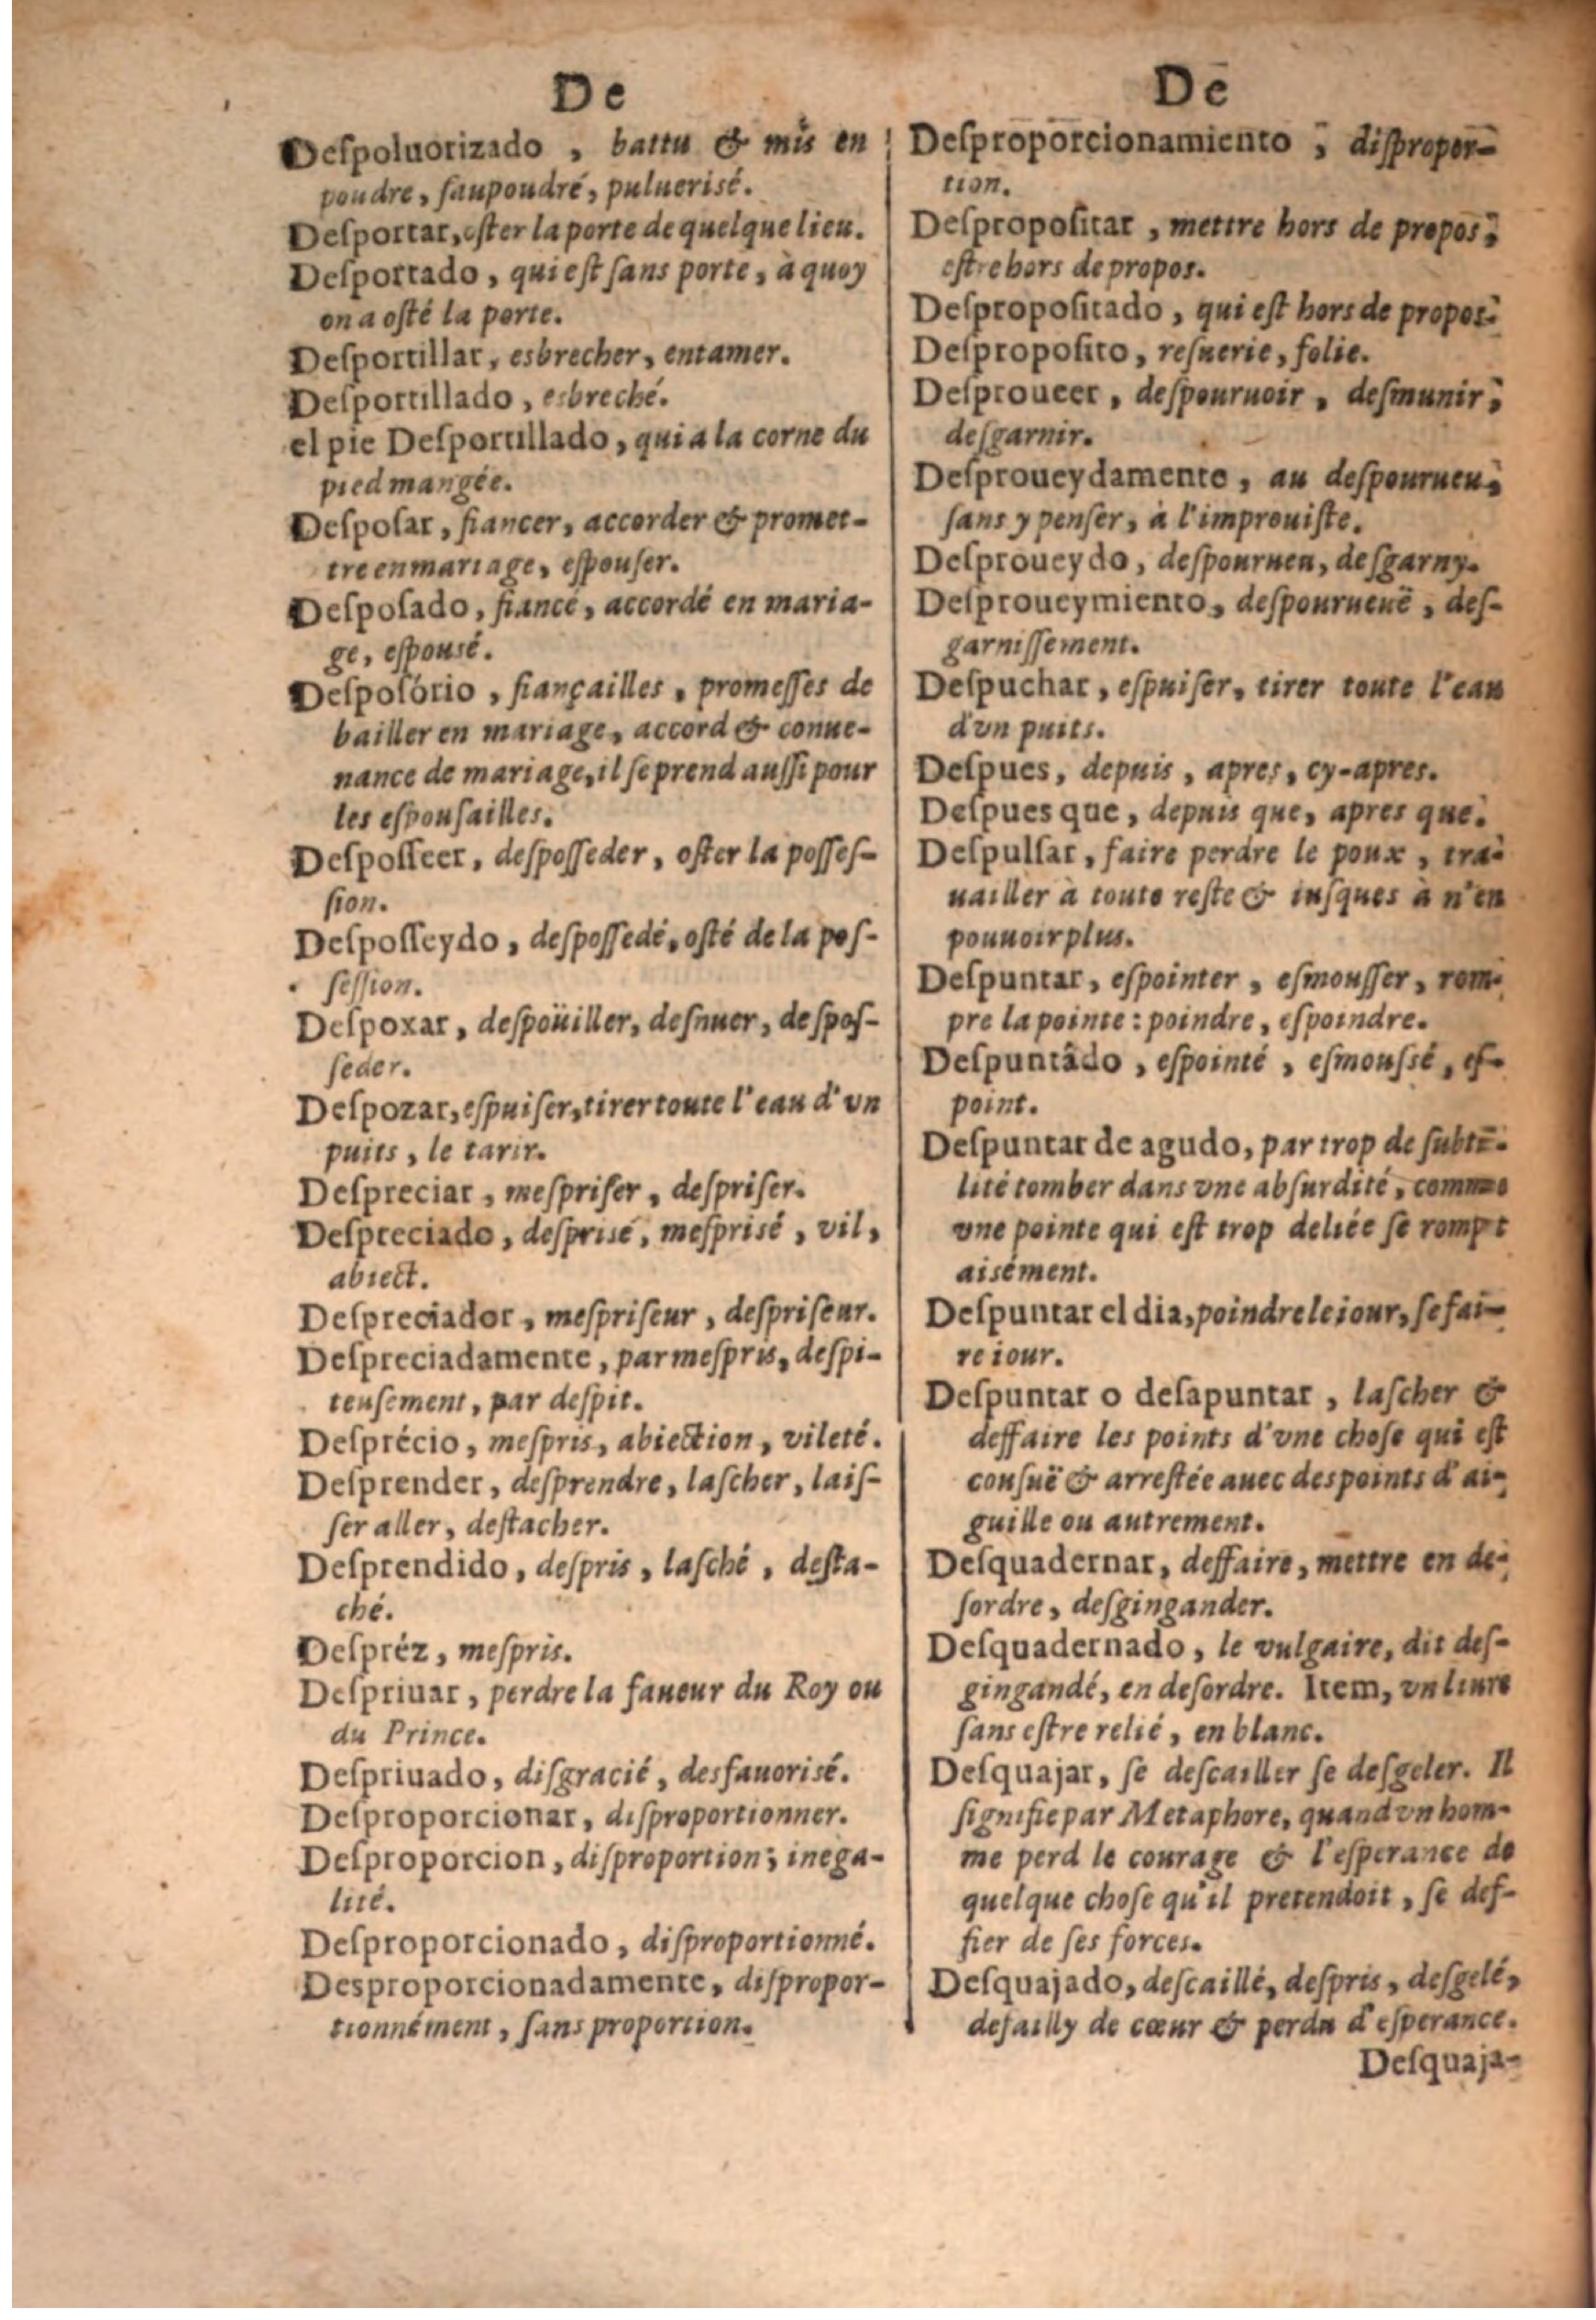 De
Deſpoluorizado, battu & mis en
poudre, ſaupoudré, puluerisé.
Deſportar, oſter la porte de quelque lieu.
Deſportado, qui eſt ſans porte, à quoy
on a oſté la porte.
Deſportillar, esbrecher, entamer.
Deſportillado, esbreché.
el pie Deſportillado, qui a la corne du
pied mangée.
Deſpoſar, fiancer, accorder & promet-
tre en mariage, eſpouſer.
Deſpoſado, fiancé, accordé en maria-
ge, eſpousé.
Deſpoſório, fiançailles, promeſſes de
bailler en mariage, accord & conue-
nance de mariage, il ſe prend auſſi pour
les eſpouſailles.
Deſpoſſeer, deſpoſſeder, oſter la poſſeſ-
ſion.
Deſpoſſeydo, deſpoſſedé, oſté de la poſ-
ſeſſion.
Deſpoxar, deſpoüiller, deſnuer, deſpoſ-
ſeder.
Deſpozar, eſpuiſer, tirer toute l'eau d'vn
puits, le tarir.
Deſpreciar, meſpriſer, deſpriſer.
Deſpreciado, deſprisé, meſprisé, vil,
abiect.
Deſpreciador, meſpriſeur, deſpriſeur.
Deſpreciadamente, par meſpris, deſpi-
teuſement, par deſpit.
Deſprécio, meſpris, abiection, vileté.
Deſprender, deſprendre, laſcher, laiſ-
ſer aller, deſtacher.
Deſprendido, deſpris, laſché, deſta-
ché.
Deſpréz, meſpris.
Deſpriuar, perdre la faueur du Roy ou
du Prince.
Deſpriuado, diſgracié, desfauorisé.
Deſproporcionar, diſproportionner.
Deſproporcion, diſproportion, inega-
lité.
Deſproporcionado, diſproportionné.
Desproporcionadamente, diſpropor-
tionnément, ſans proportion.
De
Deſproporcionamiento, diſpropor-
tion.
Deſpropoſitar, mettre hors de propos,
eſtre hors de propos.
Deſpropoſitado, qui eſt hors de propos.
Deſpropoſito, reſuerie, folie.
Deſproueer, deſpouruoir, deſmunir,
deſgarnir.
Deſproueydamente, au deſpourueu,
ſans y penſer, à l'improuiſte.
Deſproueydo, deſpourueu, deſgarny.
Deſproueymiento, deſpourueuë, deſ-
garniſſement.
Deſpuchar, eſpuiſer, tirer toute l'eau
d'vn puits.
Deſpues, depuis, apres, cy-apres.
Deſpues que, depuis que, apres que.
Deſpulſar, faire perdre le poux, tra-
uailler à toute reſte & iuſques à n'en
pouuoir plus.
Deſpuntar, eſpointer, eſmouſſer, rom-
pre la pointe: poindre, eſpoindre.
Deſpuntâdo, eſpointé, eſmouſsé, eſ-
point.
Deſpuntar de agudo, par trop de ſubti-
lité tomber dans vne abſurdité, comme
vne pointe qui eſt trop deliée ſe rompt
aisément.
Deſpuntar el dia, poindre le iour, ſe fai-
re iour.
Deſpuntar o deſapuntar, laſcher &
deffaire les points d'vne choſe qui eſt
couſuë & arreſtée auec des points d'ai-
guille ou autrement.
Deſquadernar, deffaire, mettre en de-
ſordre, deſgingander.
Deſquadernado, le vulgaire, dit deſ-
gingandé, en deſordre. Item, vn liure
ſans eſtre relié, en blanc.
Deſquajar, ſe deſcailler ſe deſgeler. Il
ſignifie par Metaphore, quand vn hom-
me perd le courage & l'eſperance de
quelque choſe qu'il pretendoit, ſe def-
fier de ſes forces.
Deſquajado, deſcaillé, deſpris, deſgelé,
defailly de cœur & perdu d'eſperance.
Deſquaja-